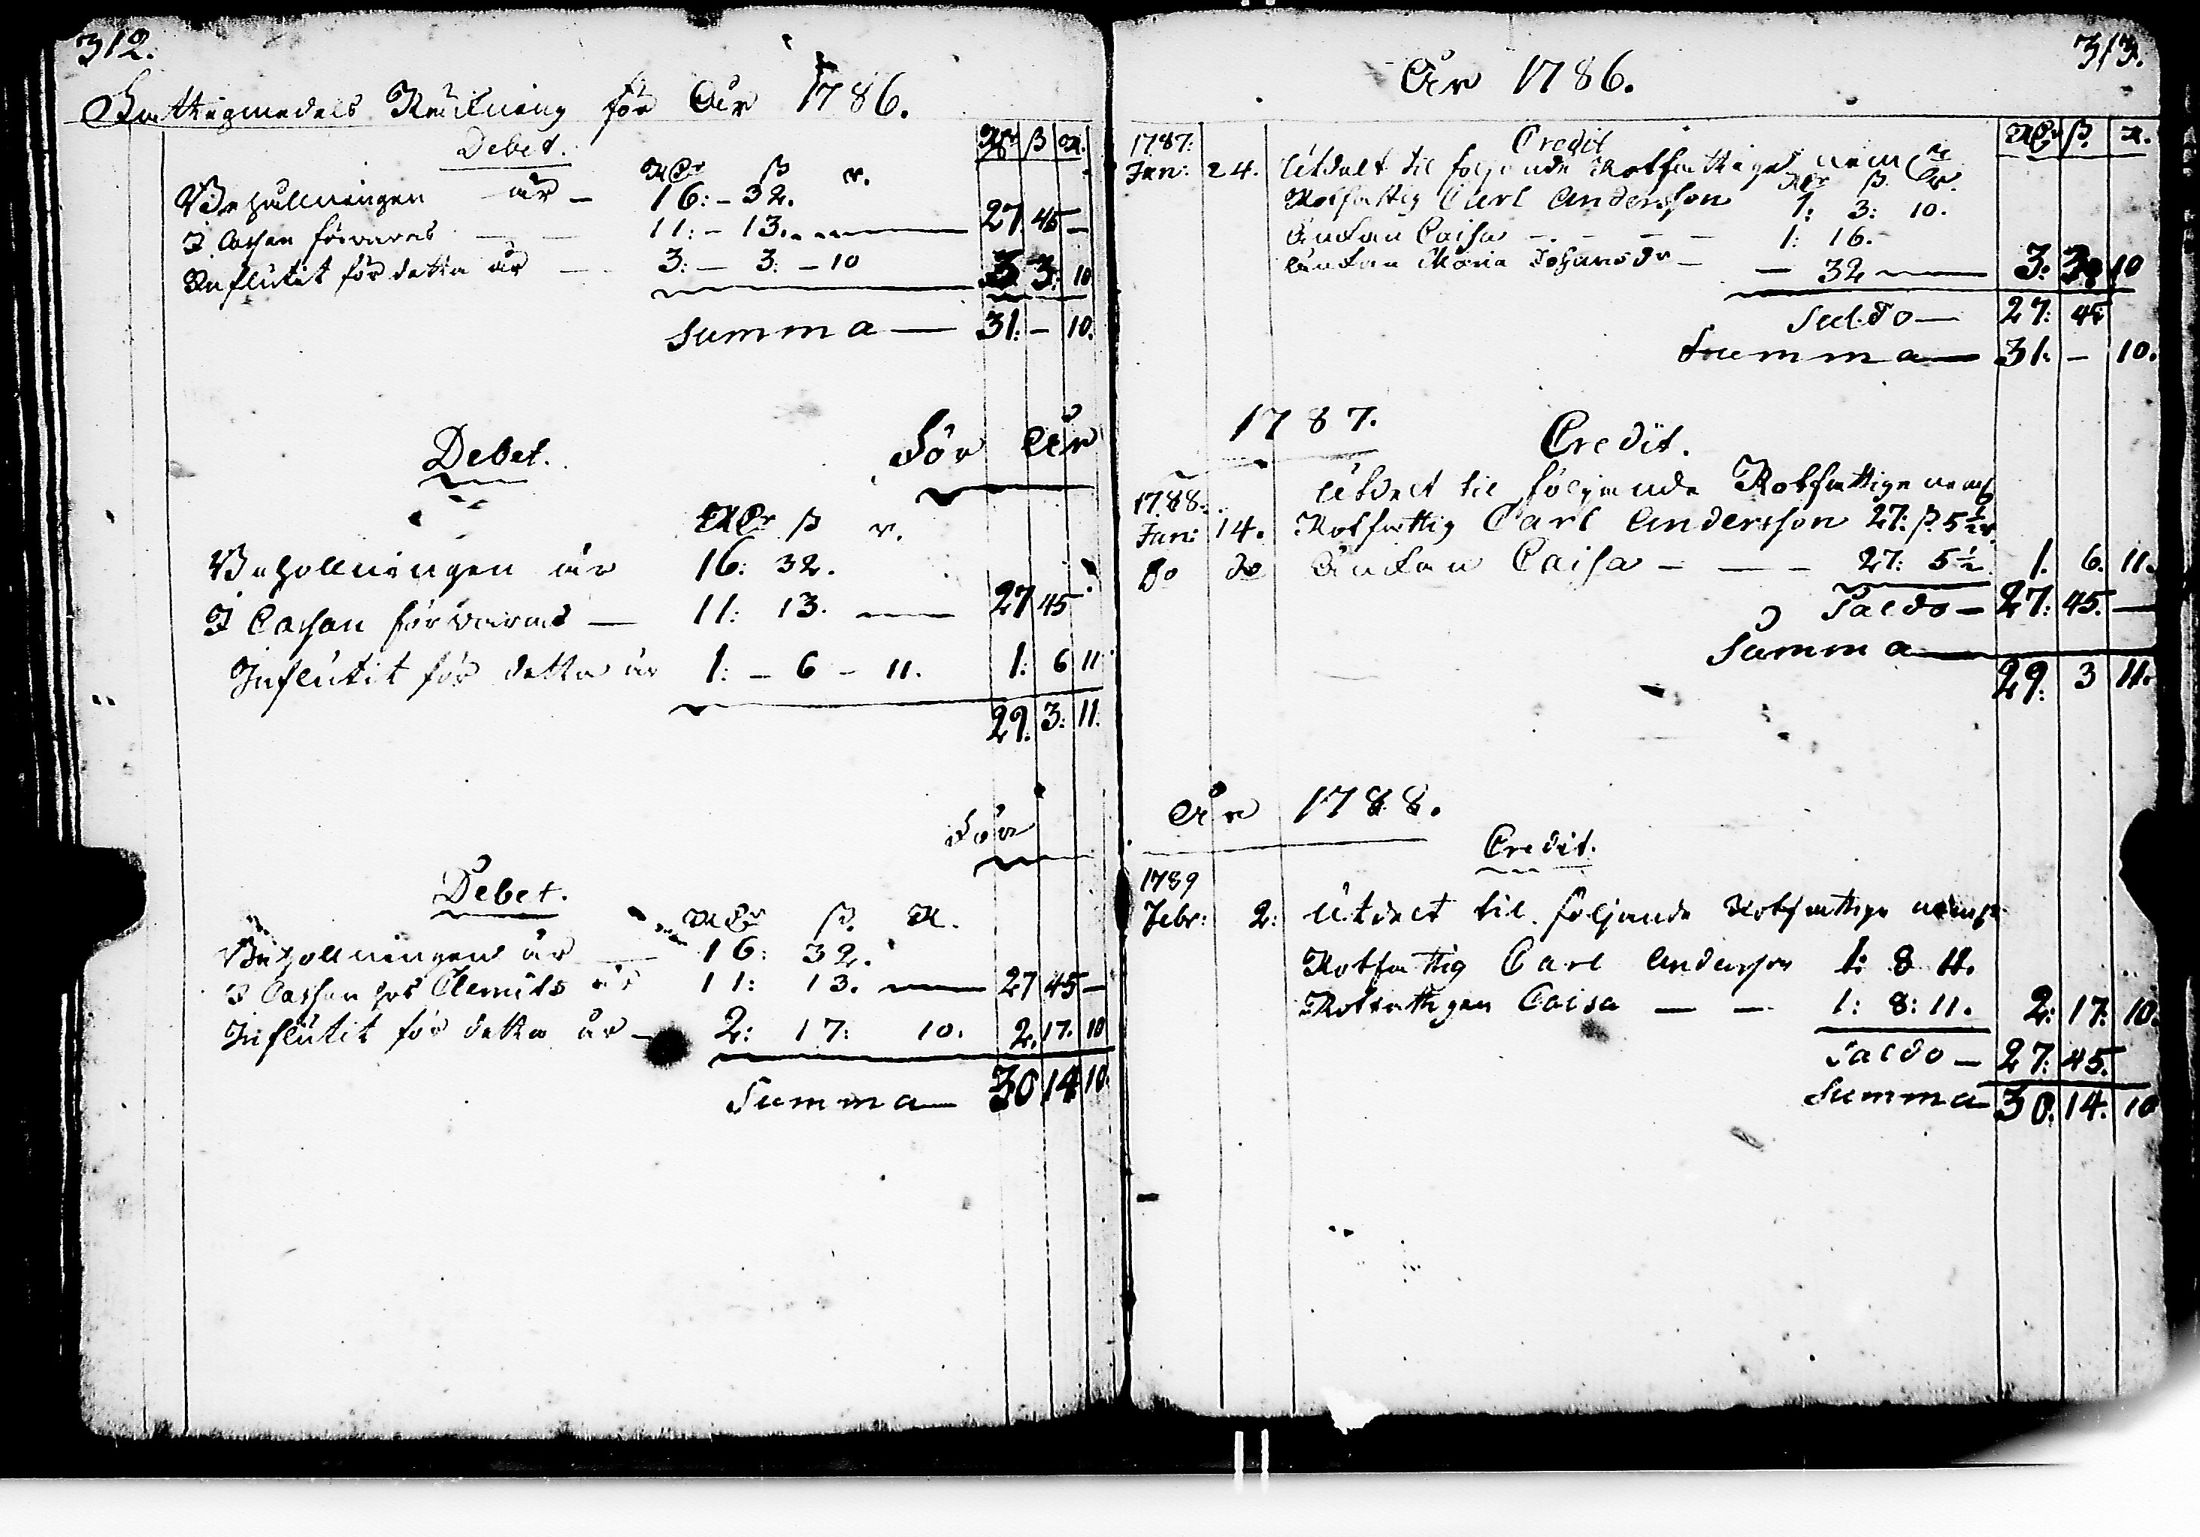 312.
Fattigmedels Räkning för År 1786.
Debet.
Rdr ß r.
Rdr ß r.
Behållningen är – 16: – 32.
I Cassan förvaras – 11: – 13. – 27 45 –
Influtit för detta år – 3: – 3: – 10 3: 3: 10
Summa – 31: – 10.
Debet. För År
Rdr ß r.
Behollningen är 16: 32.
I Cassan förvaras – 11: 13. – 27 45
Influtit för detta år 1: – 6 – 11. 1: 6 11
29. 3: 11.
För
Debet.
Rdr ß. r.
Behollningen är – 16: 32.
I Cassan hos Clemits är 11: 13. – 27 45 –
Influtit för detta år – 2: 17: 10. 2. 17. 10
Summa – 30 14 10.
313.
År 1786.
Credit
Rdr ß. r.
1787:
Jan: 24. Utdelt til följande Rotfattiga nem
Rdr ß. r.
Rotfattig Carl Andersson 1: 3: 10.
Änkan Caisa – – – – 1: 16. –
Änkan Maria Johansdr – – 32 – 3: 3 10
Saldo – 27: 45
Summa – 31: – 10.
1787.
Credit.
1788. Utdelt til följande Rotfattige nem
Jan: 14. Rotfattig Carl Andersson 27: ß. 5½ r.
Do do Änkan Caisa – – – 27: 5½ 1. 6. 11.
Saldo – 27: 45. –
Summa –
29: 3 11.
År 1788.
Credit.
1789
Febr: 2: Utdelt til följande Rotfattige nemt
Rotfattig Carl Andersson 1: 8 11.
Rotfattigen Caisa – – 1: 8: 11. 2: 17: 10.
Saldo – 27: 45.
Summa 30: 14. 10